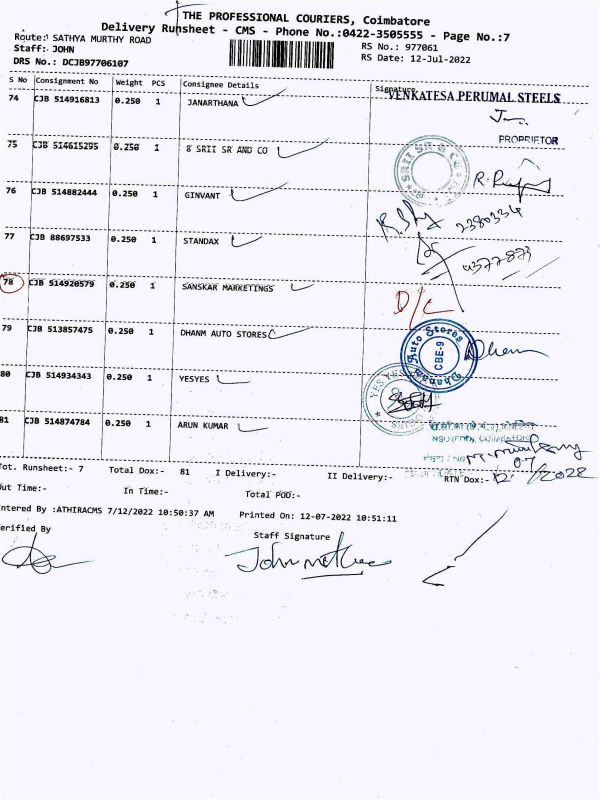 THE PROFESSIONAL COURIERS, Coimbatore
Delivery Runsheet - CMS - Phone No.:0422-3505555 - Page No.:7
Route: SATHYA MURTHY ROAD RS No.: 977061
Staff: JOHN RS Date: 12-Jul-2022
DRS No.: DCJB97706107
S No Consignment No Weight PCS Consignee Details Signature
VENKATESA PERUMAL STEELS
74 CJB 514916813 0.250 1 JANARTHANA
PROPRIETOR
75 CJB 514615295 0.250 1 8 SRII SR AND CO
SRII SR & Co
76 CJB 514882444 0.250 1 GINVANT
2380334
77 CJB 88697533 0.250 1 STANDAX
4377873
78 CJB 514920579 0.250 1 SANSKAR MARKETINGS
D/C
79 CJB 513857475 0.250 1 DHANM AUTO STORES
Dhanam Auto Stores
CBE-9
80 CJB 514934343 0.250 1 YESYES
YES YES
81 CJB 514874784 0.250 1 ARUN KUMAR
Tot. Runsheet:- 7 Total Dox:- 81 I Delivery:- II Delivery:- RTN Dox:-
12/07/2022
Out Time:- In Time:- Total POD:-
Entered By :ATHIRACMS 7/12/2022 10:50:37 AM Printed On: 12-07-2022 10:51:11
Verified By Staff Signature